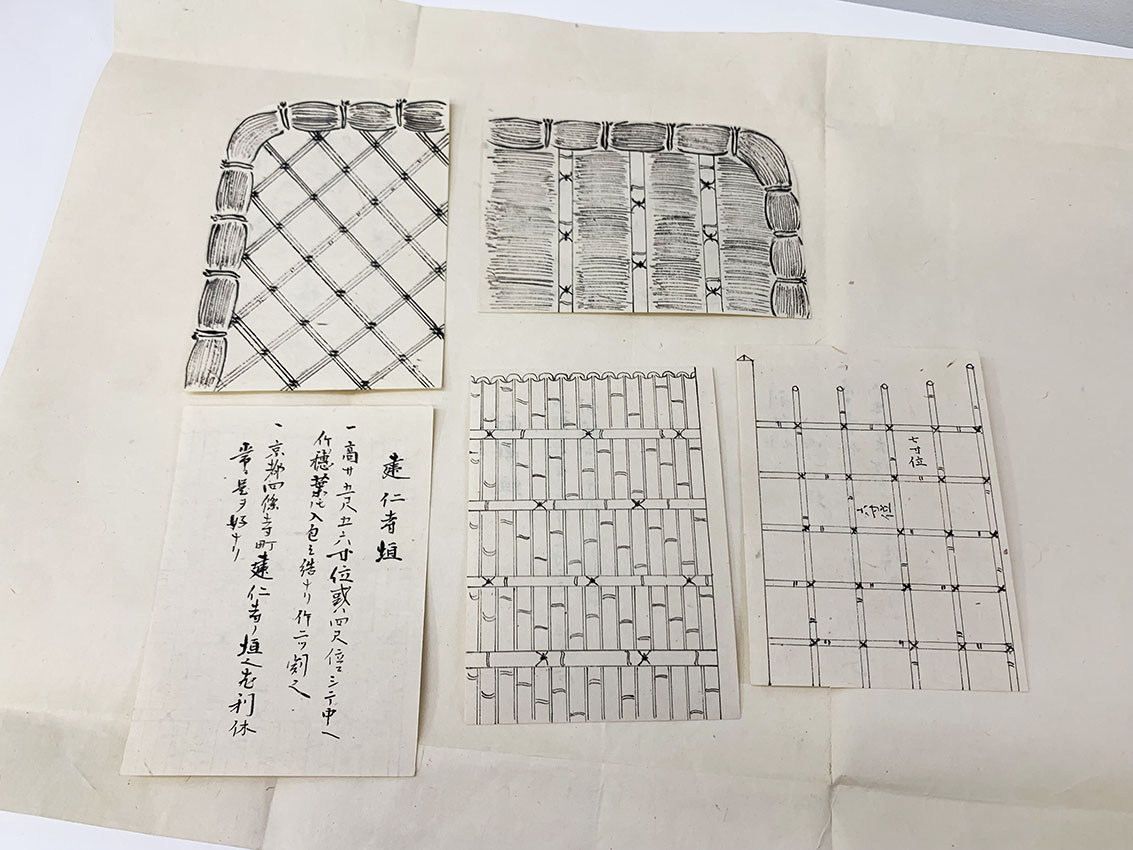 建仁寺垣
一高サ五尺五六寸位或ハ四尺位ニシテ中ヘ
竹穂葉ヲ入包之結ナリ竹二ツ割之
一京都四條寺町建仁寺ノ垣也老利休
常ニ是ヲ好ナリ
七寸位
六寸位